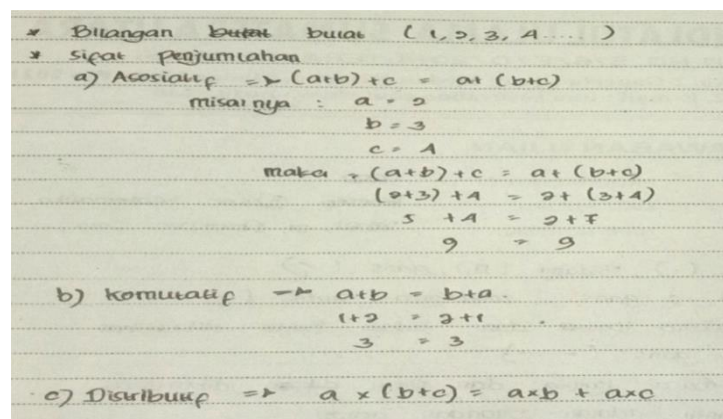 * Bilangan bulat bulat (1, 2, 3, 4 ...)
* sifat Penjumlahan
a) Asosiatif => (a+b) + c = a + (b+c)
misalnya : a = 2
b = 3
c = 4
maka = (a+b) + c = a + (b+c)
(2+3) + 4 = 2 + (3+4)
5 + 4 = 2 + 7
9 = 9
b) komutatif -> a+b = b+a
1+2 = 2+1
3 = 3
c) Distributif => a x (b+c) = axb + axc